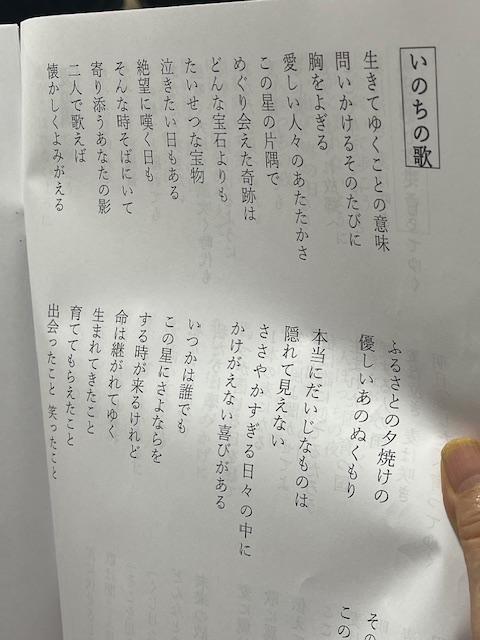 いのちの歌
生きてゆくことの意味
問いかけるそのたびに
胸をよぎる
愛しい人々のあたたかさ
この星の片隅で
めぐり会えた奇跡は
どんな宝石よりも
たいせつな宝物
泣きたい日もある
絶望に嘆く日も
そんな時そばにいて
寄り添うあなたの影
二人で歌えば
懐かしくよみがえる
ふるさとの夕焼けの
優しいあのぬくもり
本当にだいじなものは
隠れて見えない
ささやかすぎる日々の中に
かけがえない喜びがある
いつかは誰でも
この星にさよならを
する時が来るけれど
命は継がれてゆく
生まれてきたこと
育ててもらえたこと
出会ったこと 笑ったこと
その
この